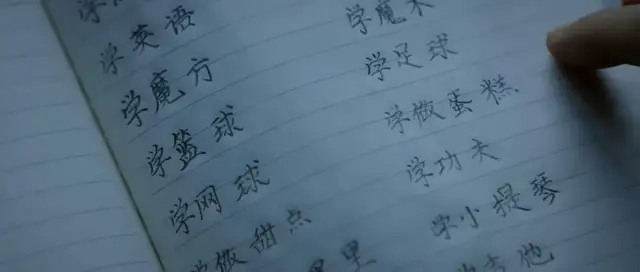 学英语
学魔方
学篮球
学网球
学做甜点
学魔术
学足球
学做蛋糕.
学功夫
学小提琴
吉他